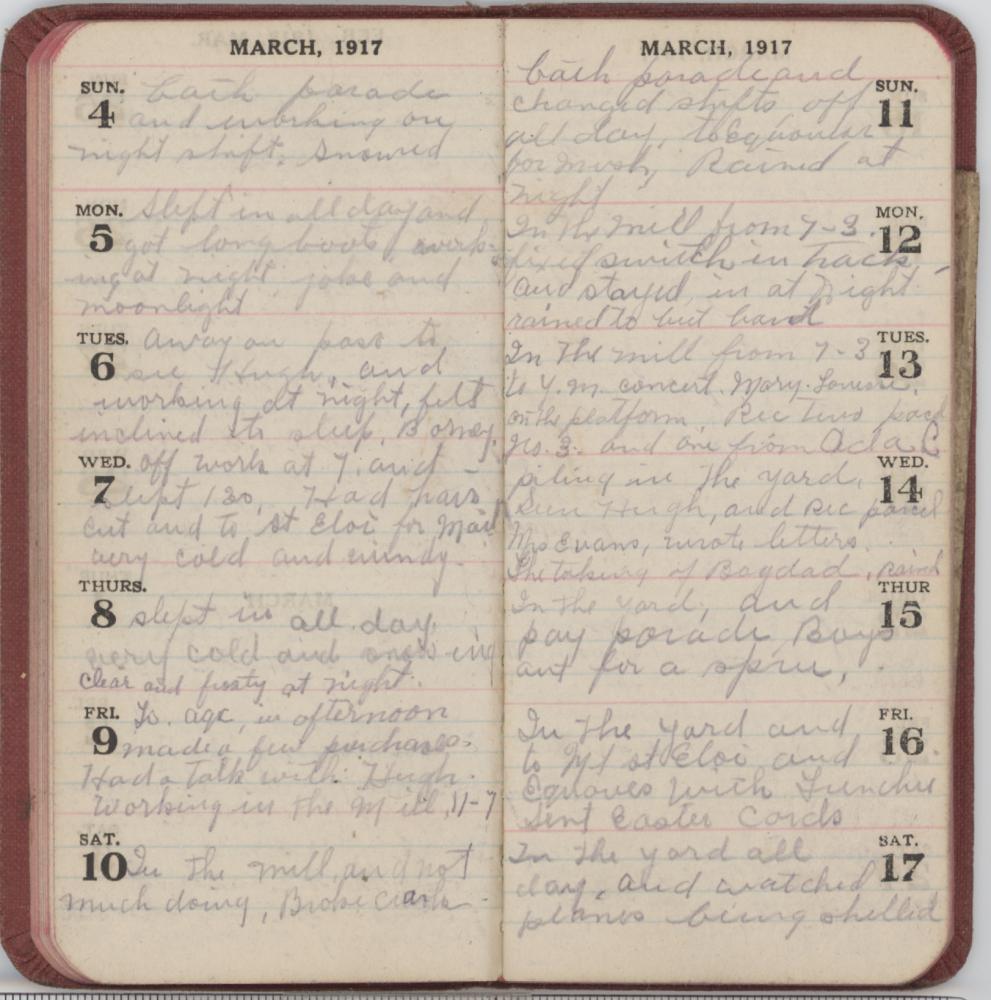 MARCH, 1917
SUN.
4
bath parade
and working on
night shift. Snowed
MON.
5
Slept in all day and
got long boots work-
ing at night joke and
moonlight
TUES.
6
away on pass to
see Hugh, and
working at night, felt
inclined to sleep.
WED.
7
off work at 7. and
slept 1 30, Had hair
cut and to St Eloi for
very cold and windy.
THURS.
8
slept in all day
very cold and snowing
clear and frosty at night.
FRI.
9
To. in afternoon
made a few purchases.
Had a talk with Hugh.
Working in the Mill, 11-7
SAT.
10
In the mill, and not
much doing, Broke crank
MARCH, 1917
SUN.
11
bath parade and
changed shifts off
all day, to
for mush, Rained at
night
MON.
12
In the mill from 7-3.
fixed switch in track
and stayed in at night
rained to but hard
TUES.
13
In the mill from 7-3
to Y.M. concert. Mary. Louise,
on the platform Rec two parcl
No. 3. and one from Ada C
WED.
14
piling in the yard,
Seen Hugh, and Rec parcel
Mrs Evans, wrote letters.
The taking of Bagdad, Raind
THUR
15
In the yard, and
pay parade Boys
out for a spree,
FRI.
16
In the yard and
to Mt St Eloi and
with Lunches
Sent Easter Cards
SAT.
17
In the yard all
day, and watched
planes being shelled